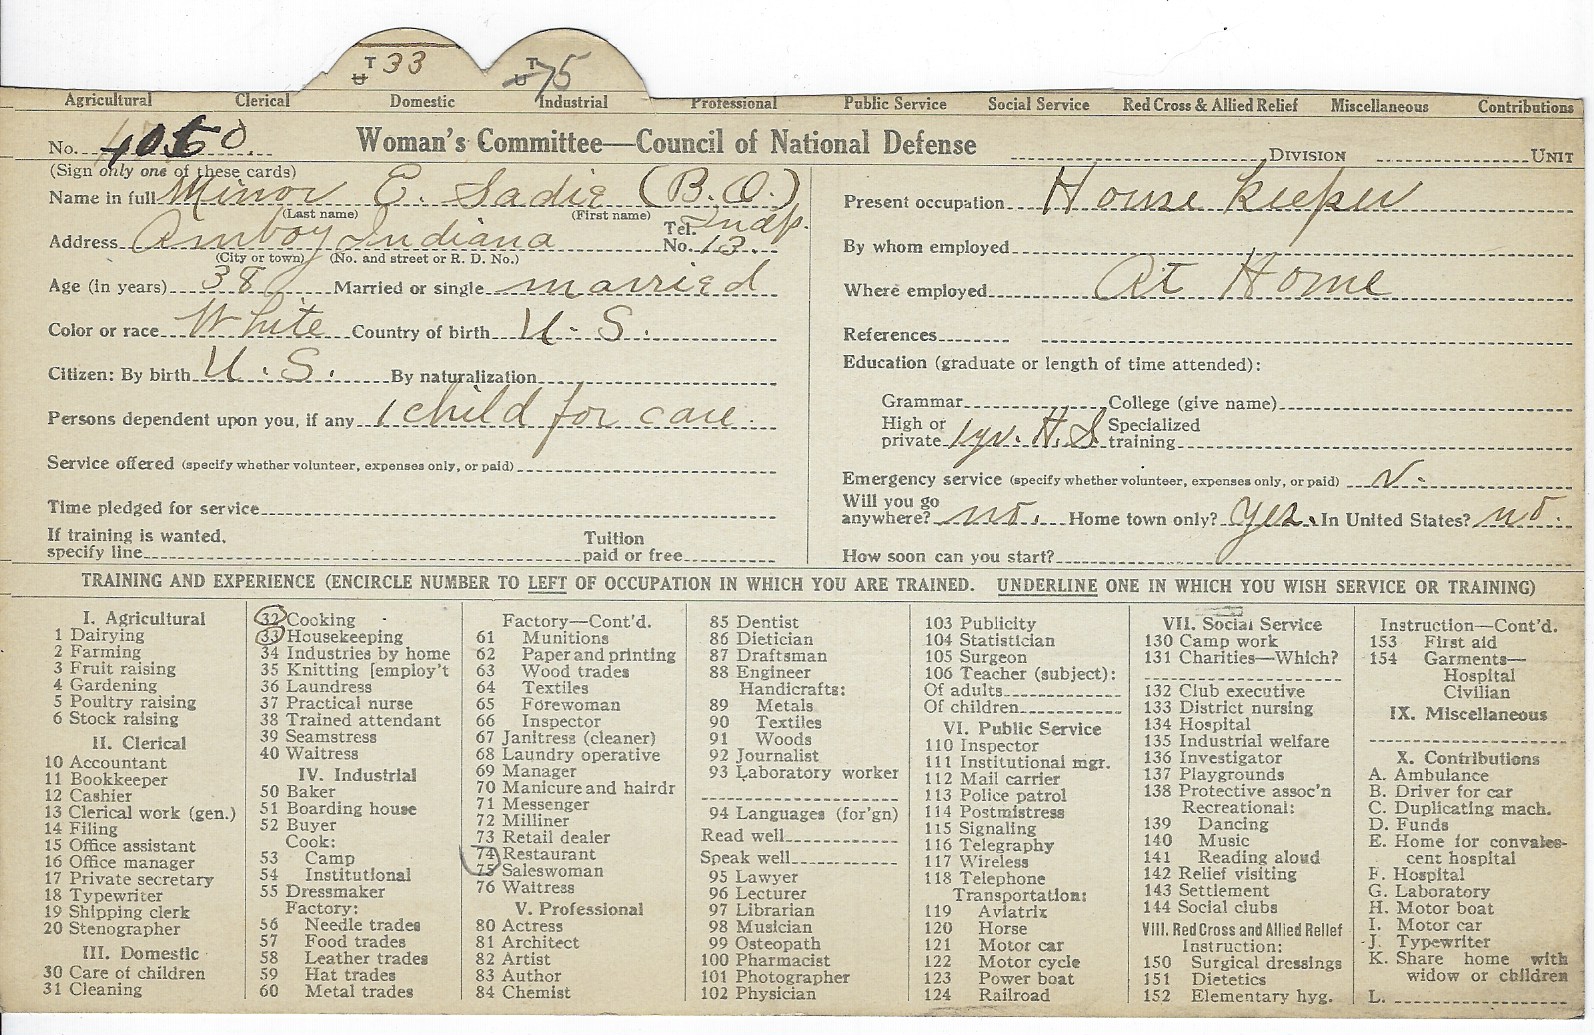 T
U 33
T
U 75
Agricultural Clerical Domestic Industrial Professional Public Service Social Service Red Cross & Allied Relief Miscellaneous Contributions
No. 4050 Woman's Committee—Council of National Defense DIVISION UNIT
(Sign only one of these cards)
Name in full Minor E. Sadie (B.O.)
(Last name) (First name)
Address Amboy Indiana Tel. No. Indp. 13.
(City or town) (No. and street or R. D. No.)
Age (in years) 38 Married or single married
Color or race White Country of birth U. S.
Citizen: By birth U. S. By naturalization
Persons dependent upon you, if any 1 child for care.
Service offered (specify whether volunteer, expenses only, or paid)
Time pledged for service
If training is wanted, specify line Tuition paid or free
Present occupation House keeper
By whom employed
Where employed At Home
References
Education (graduate or length of time attended):
Grammar College (give name)
High or private 1 yr. H. S. Specialized training
Emergency service (specify whether volunteer, expenses only, or paid) v.
Will you go anywhere? no. Home town only? Yes. In United States? no.
How soon can you start?
TRAINING AND EXPERIENCE (ENCIRCLE NUMBER TO LEFT OF OCCUPATION IN WHICH YOU ARE TRAINED. UNDERLINE ONE IN WHICH YOU WISH SERVICE OR TRAINING)
I. Agricultural
1 Dairying
2 Farming
3 Fruit raising
4 Gardening
5 Poultry raising
6 Stock raising
II. Clerical
10 Accountant
11 Bookkeeper
12 Cashier
13 Clerical work (gen.)
14 Filing
15 Office assistant
16 Office manager
17 Private secretary
18 Typewriter
19 Shipping clerk
20 Stenographer
III. Domestic
30 Care of children
31 Cleaning
32 Cooking
33 Housekeeping
34 Industries by home
35 Knitting [employ't
36 Laundress
37 Practical nurse
38 Trained attendant
39 Seamstress
40 Waitress
IV. Industrial
50 Baker
51 Boarding house
52 Buyer
Cook:
53 Camp
54 Institutional
55 Dressmaker
Factory:
56 Needle trades
57 Food trades
58 Leather trades
59 Hat trades
60 Metal trades
Factory—Cont'd.
61 Munitions
62 Paper and printing
63 Wood trades
64 Textiles
65 Forewoman
66 Inspector
67 Janitress (cleaner)
68 Laundry operative
69 Manager
70 Manicure and hairdr
71 Messenger
72 Milliner
73 Retail dealer
74 Restaurant
75 Saleswoman
76 Waitress
V. Professional
80 Actress
81 Architect
82 Artist
83 Author
84 Chemist
85 Dentist
86 Dietician
87 Draftsman
88 Engineer
Handicrafts:
89 Metals
90 Textiles
91 Woods
92 Journalist
93 Laboratory worker
94 Languages (for'gn)
Read well
Speak well
95 Lawyer
96 Lecturer
97 Librarian
98 Musician
99 Osteopath
100 Pharmacist
101 Photographer
102 Physician
103 Publicity
104 Statistician
105 Surgeon
106 Teacher (subject):
Of adults
Of children
VI. Public Service
110 Inspector
111 Institutional mgr.
112 Mail carrier
113 Police patrol
114 Postmistress
115 Signaling
116 Telegraphy
117 Wireless
118 Telephone
Transportation:
119 Aviatrix
120 Horse
121 Motor car
122 Motor cycle
123 Power boat
124 Railroad
VII. Social Service
130 Camp work
131 Charities—Which?
132 Club executive
133 District nursing
134 Hospital
135 Industrial welfare
136 Investigator
137 Playgrounds
138 Protective assoc'n
Recreational:
139 Dancing
140 Music
141 Reading aloud
142 Relief visiting
143 Settlement
144 Social clubs
VIII. Red Cross and Allied Relief
Instruction:
150 Surgical dressings
151 Dietetics
152 Elementary hyg.
Instruction—Cont'd.
153 First aid
154 Garments—
Hospital
Civilian
IX. Miscellaneous
X. Contributions
A. Ambulance
B. Driver for car
C. Duplicating mach.
D. Funds
E. Home for convales-
cent hospital
F. Hospital
G. Laboratory
H. Motor boat
I. Motor car
J. Typewriter
K. Share home with
widow or children
L.